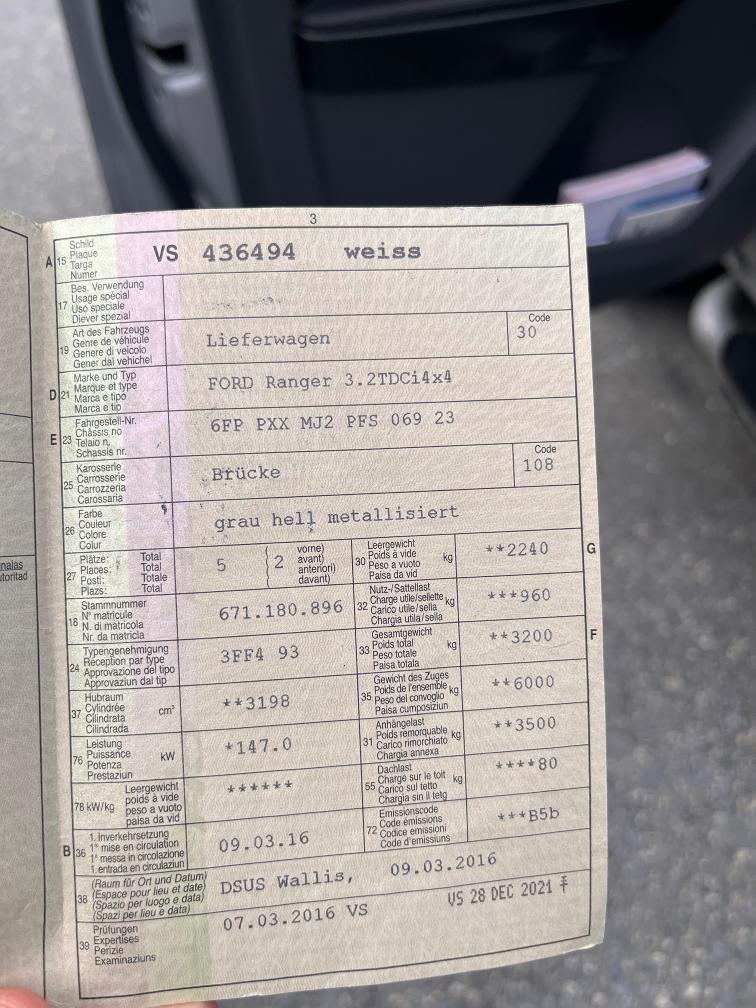 3
A 15 Schild Plaque Targa Numer VS 436494 weiss
17 Bes. Verwendung Usage spécial Uso speciale Diever spezial
19 Art des Fahrzeugs Genre de véhicule Genere di veicolo Gener dal vehichel Lieferwagen Code 30
D 21 Marke und Typ Marque et type Marca e tipo Marca e tip FORD Ranger 3.2TDCi4x4
E 23 Fahrgestell-Nr. Châssis no Telaio n. Schassis nr. 6FP PXX MJ2 PFS 069 23
25 Karosserie Carrosserie Carrozzeria Carossaria Brücke Code 108
26 Farbe Couleur Colore Colur grau hell metallisiert
27 Plätze: Total Places: Total Posti: Totale Plazs: Total 5 2 vorne) avant) anteriori) davant)
30 Leergewicht Poids à vide Peso a vuoto Paisa da vid kg **2240 G
18 Stammnummer N° matricule N. di matricola Nr. da matricla 671.180.896
32 Nutz-/Sattellast Charge utile/sellette Carico utile/sella Chargia utila/sella kg ***960
24 Typengenehmigung Réception par type Approvazione del tipo Approvaziun dal tip 3FF4 93
33 Gesamtgewicht Poids total Peso totale Paisa totala kg **3200 F
37 Hubraum Cylindrée Cilindrata Cilindrada cm³ **3198
35 Gewicht des Zuges Poids de l'ensemble Peso del convoglio Paisa cumposiziun kg **6000
76 Leistung Puissance Potenza Prestaziun kW *147.0
31 Anhängelast Poids remorquable Carico rimorchiato Chargia annexa kg **3500
78 kW/kg Leergewicht poids à vide peso a vuoto paisa da vid ******
55 Dachlast Charge sur le toit Carico sul tetto Chargia sin il tetg kg ****80
B 36 1. Inverkehrsetzung 1re mise en circulation 1a messa in circolazione 1. entrada en circulaziun 09.03.16
72 Emissionscode Code émissions Codice emissioni Code d'emissiuns ***B5b
38 (Raum für Ort und Datum) (Espace pour lieu et date) (Spazio per luogo e data) (Spazi per lieu e data) DSUS Wallis, 09.03.2016
39 Prüfungen Expertises Perizie Examinaziuns 07.03.2016 VS VS 28 DEC 2021